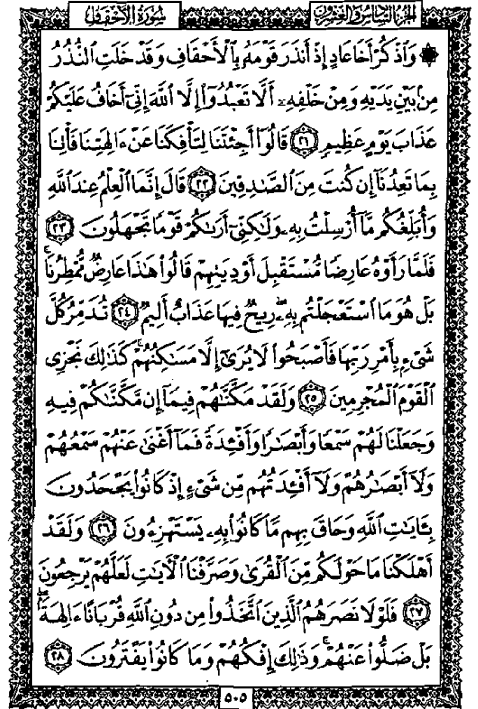 الجزء السادس والعشرون سورة الأحقاف
۞ وَٱذْكُرْ أَخَا عَادٍ إِذْ أَنذَرَ قَوْمَهُۥ بِٱلْأَحْقَافِ وَقَدْ خَلَتِ ٱلنُّذُرُ
مِنۢ بَيْنِ يَدَيْهِ وَمِنْ خَلْفِهِۦٓ أَلَّا تَعْبُدُوٓا۟ إِلَّا ٱللَّهَ إِنِّىٓ أَخَافُ عَلَيْكُمْ
عَذَابَ يَوْمٍ عَظِيمٍ ٢١ قَالُوٓا۟ أَجِئْتَنَا لِتَأْفِكَنَا عَنْ ءَالِهَتِنَا فَأْتِنَا
بِمَا تَعِدُنَآ إِن كُنتَ مِنَ ٱلصَّـٰدِقِينَ ٢٢ قَالَ إِنَّمَا ٱلْعِلْمُ عِندَ ٱللَّهِ
وَأُبَلِّغُكُم مَّآ أُرْسِلْتُ بِهِۦ وَلَـٰكِنِّىٓ أَرَىٰكُمْ قَوْمًا تَجْهَلُونَ ٢٣
فَلَمَّا رَأَوْهُ عَارِضًا مُّسْتَقْبِلَ أَوْدِيَتِهِمْ قَالُوا۟ هَـٰذَا عَارِضٌ مُّمْطِرُنَا ۚ
بَلْ هُوَ مَا ٱسْتَعْجَلْتُم بِهِۦ ۖ رِيحٌ فِيهَا عَذَابٌ أَلِيمٌ ٢٤ تُدَمِّرُ كُلَّ
شَىْءٍۭ بِأَمْرِ رَبِّهَا فَأَصْبَحُوا۟ لَا يُرَىٰٓ إِلَّا مَسَـٰكِنُهُمْ ۚ كَذَٰلِكَ نَجْزِى
ٱلْقَوْمَ ٱلْمُجْرِمِينَ ٢٥ وَلَقَدْ مَكَّنَّـٰهُمْ فِيمَآ إِن مَّكَّنَّـٰكُمْ فِيهِ
وَجَعَلْنَا لَهُمْ سَمْعًا وَأَبْصَـٰرًا وَأَفْـِٔدَةً فَمَآ أَغْنَىٰ عَنْهُمْ سَمْعُهُمْ
وَلَآ أَبْصَـٰرُهُمْ وَلَآ أَفْـِٔدَتُهُم مِّن شَىْءٍ إِذْ كَانُوا۟ يَجْحَدُونَ
بِـَٔايَـٰتِ ٱللَّهِ وَحَاقَ بِهِم مَّا كَانُوا۟ بِهِۦ يَسْتَهْزِءُونَ ٢٦ وَلَقَدْ
أَهْلَكْنَا مَا حَوْلَكُم مِّنَ ٱلْقُرَىٰ وَصَرَّفْنَا ٱلْـَٔايَـٰتِ لَعَلَّهُمْ يَرْجِعُونَ
٢٧ فَلَوْلَا نَصَرَهُمُ ٱلَّذِينَ ٱتَّخَذُوا۟ مِن دُونِ ٱللَّهِ قُرْبَانًا ءَالِهَةًۢ ۖ
بَلْ ضَلُّوا۟ عَنْهُمْ ۚ وَذَٰلِكَ إِفْكُهُمْ وَمَا كَانُوا۟ يَفْتَرُونَ ٢٨
٥٠٥